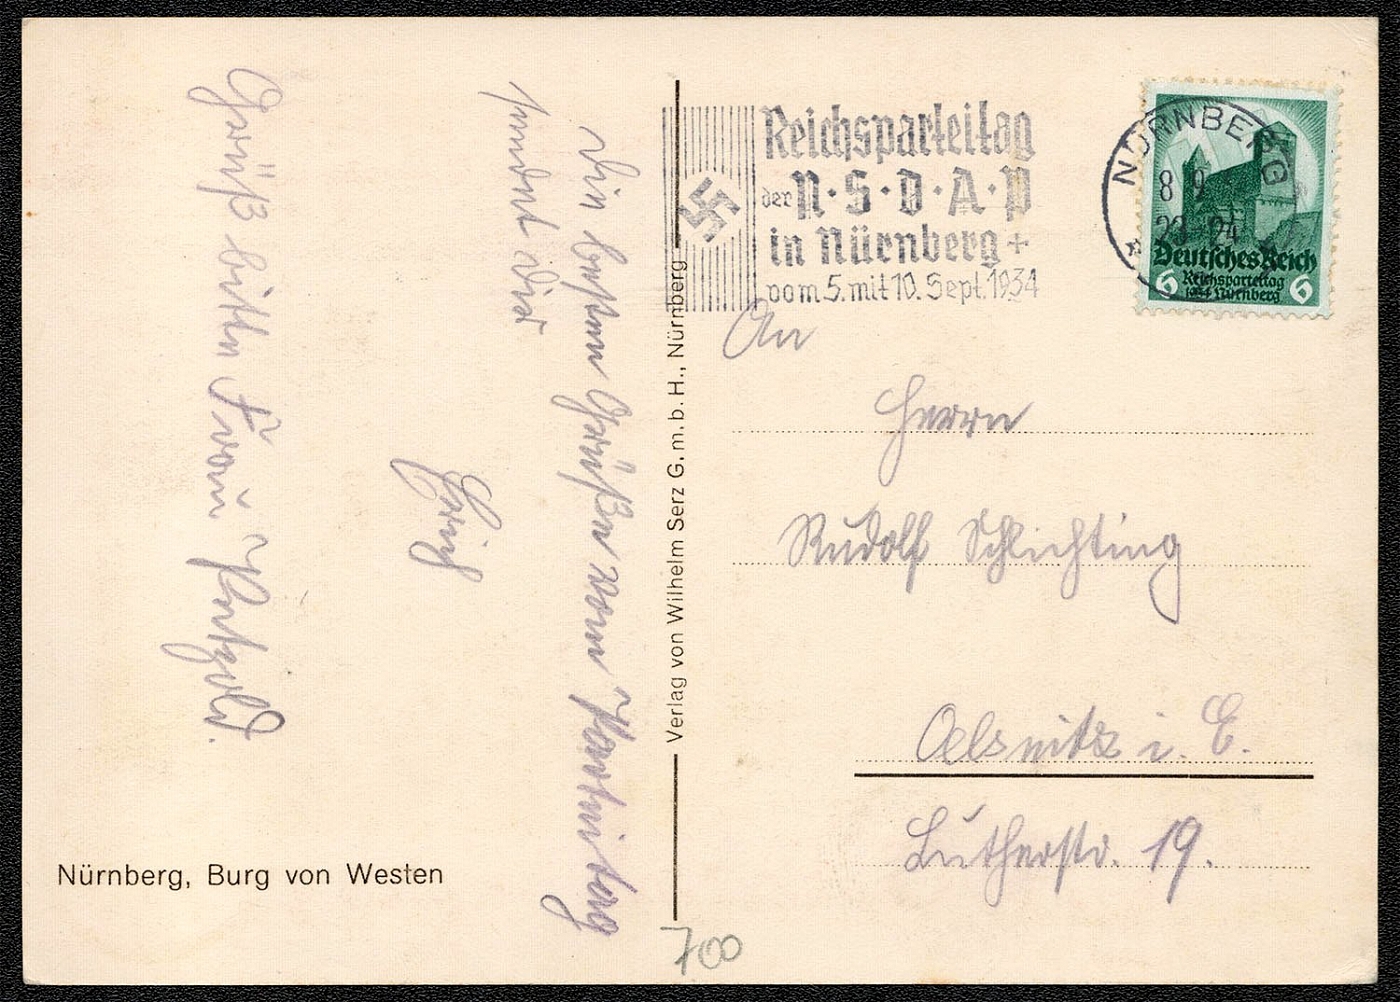 Die besten Grüße vom Parteitag
sendet Dir
Erich
Grüß bitte Frau Patzold.
Nürnberg, Burg von Westen
Verlag von Wilhelm Serz G.m.b.H., Nürnberg
Reichsparteitag
der N·S·D·A·P
in Nürnberg +
vom 5. mit 10. Sept. 1934
NÜRNBERG
8 9
23 24
Deutsches Reich
6 Reichsparteitag 6
1934 Nürnberg
An
Herrn
Rudolf Schlichting
Oelsnitz i. E.
Lutherstr. 19.
700